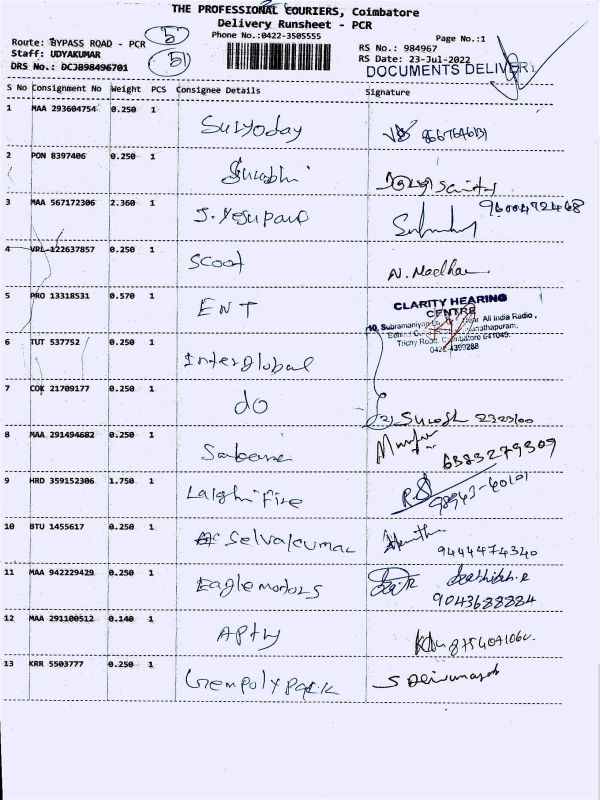 THE PROFESSIONAL COURIERS, Coimbatore
Delivery Runsheet - PCR
Phone No.:0422-3505555
Page No.:1
Route: BYPASS ROAD - PCR
Staff: UDYAKUMAR
DRS No.: DCJB98496701
RS No.: 984967
RS Date: 23-Jul-2022
DOCUMENTS DELIVERY
S No Consignment No Weight PCS Consignee Details Signature
1 MAA 293604754 0.250 1 Suryoday
2 PON 8397406 0.250 1 Surabhi
3 MAA 567172306 2.360 1 J. Yesupaul 9600472468
4 VRL 122637857 0.250 1 Scoot N. Madhan
5 PRO 13318531 0.570 1 ENT
CLARITY HEARING
CENTRE
10, Subramaniyan Near All India Radio,
Trichy Road, Coimbatore 641045.
0422 4399288
6 TUT 537752 0.250 1 Interglobal
7 COK 21709177 0.250 1 do Suresh 2323100
8 MAA 291494682 0.250 1 6383279309
9 HRD 359152306 1.750 1 Lalghi Fire 98943-60101
10 BTU 1455617 0.250 1 Selvakumar 9444474340
11 MAA 942229429 0.250 1 Eagle motors 9043688884
12 MAA 291100512 0.140 1
13 KRR 5503777 0.250 1 Gempolypack